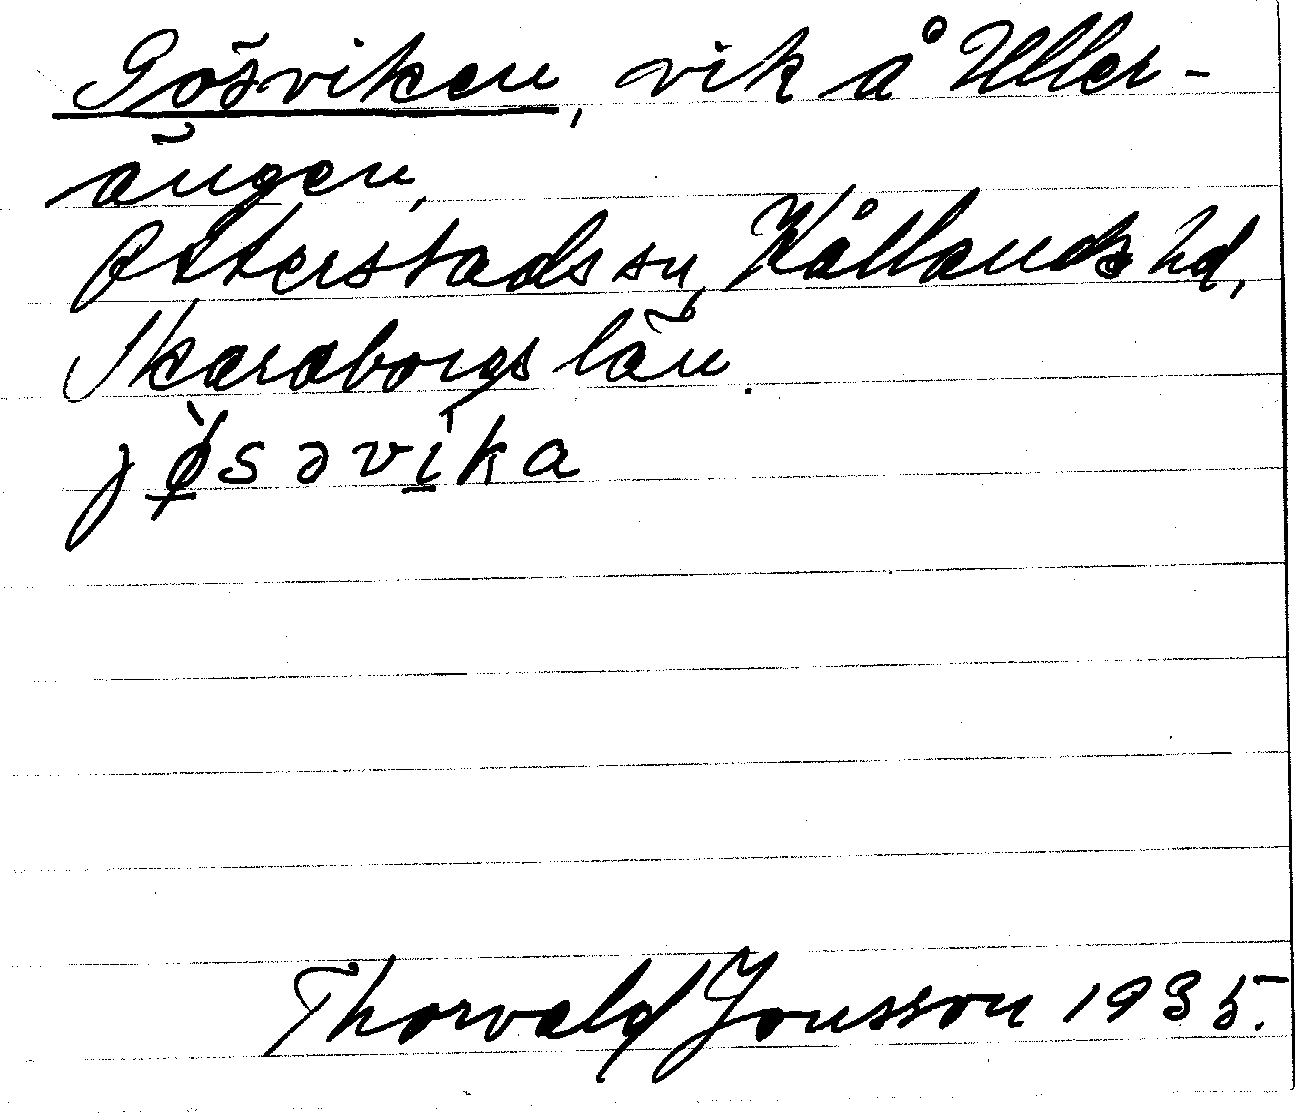 Gösviken, vik å Uller-
ängen,
Otterstads sn, Kållands hd,
Skaraborgs län.
jø̀səvika
Thorvald Jonsson 1935.